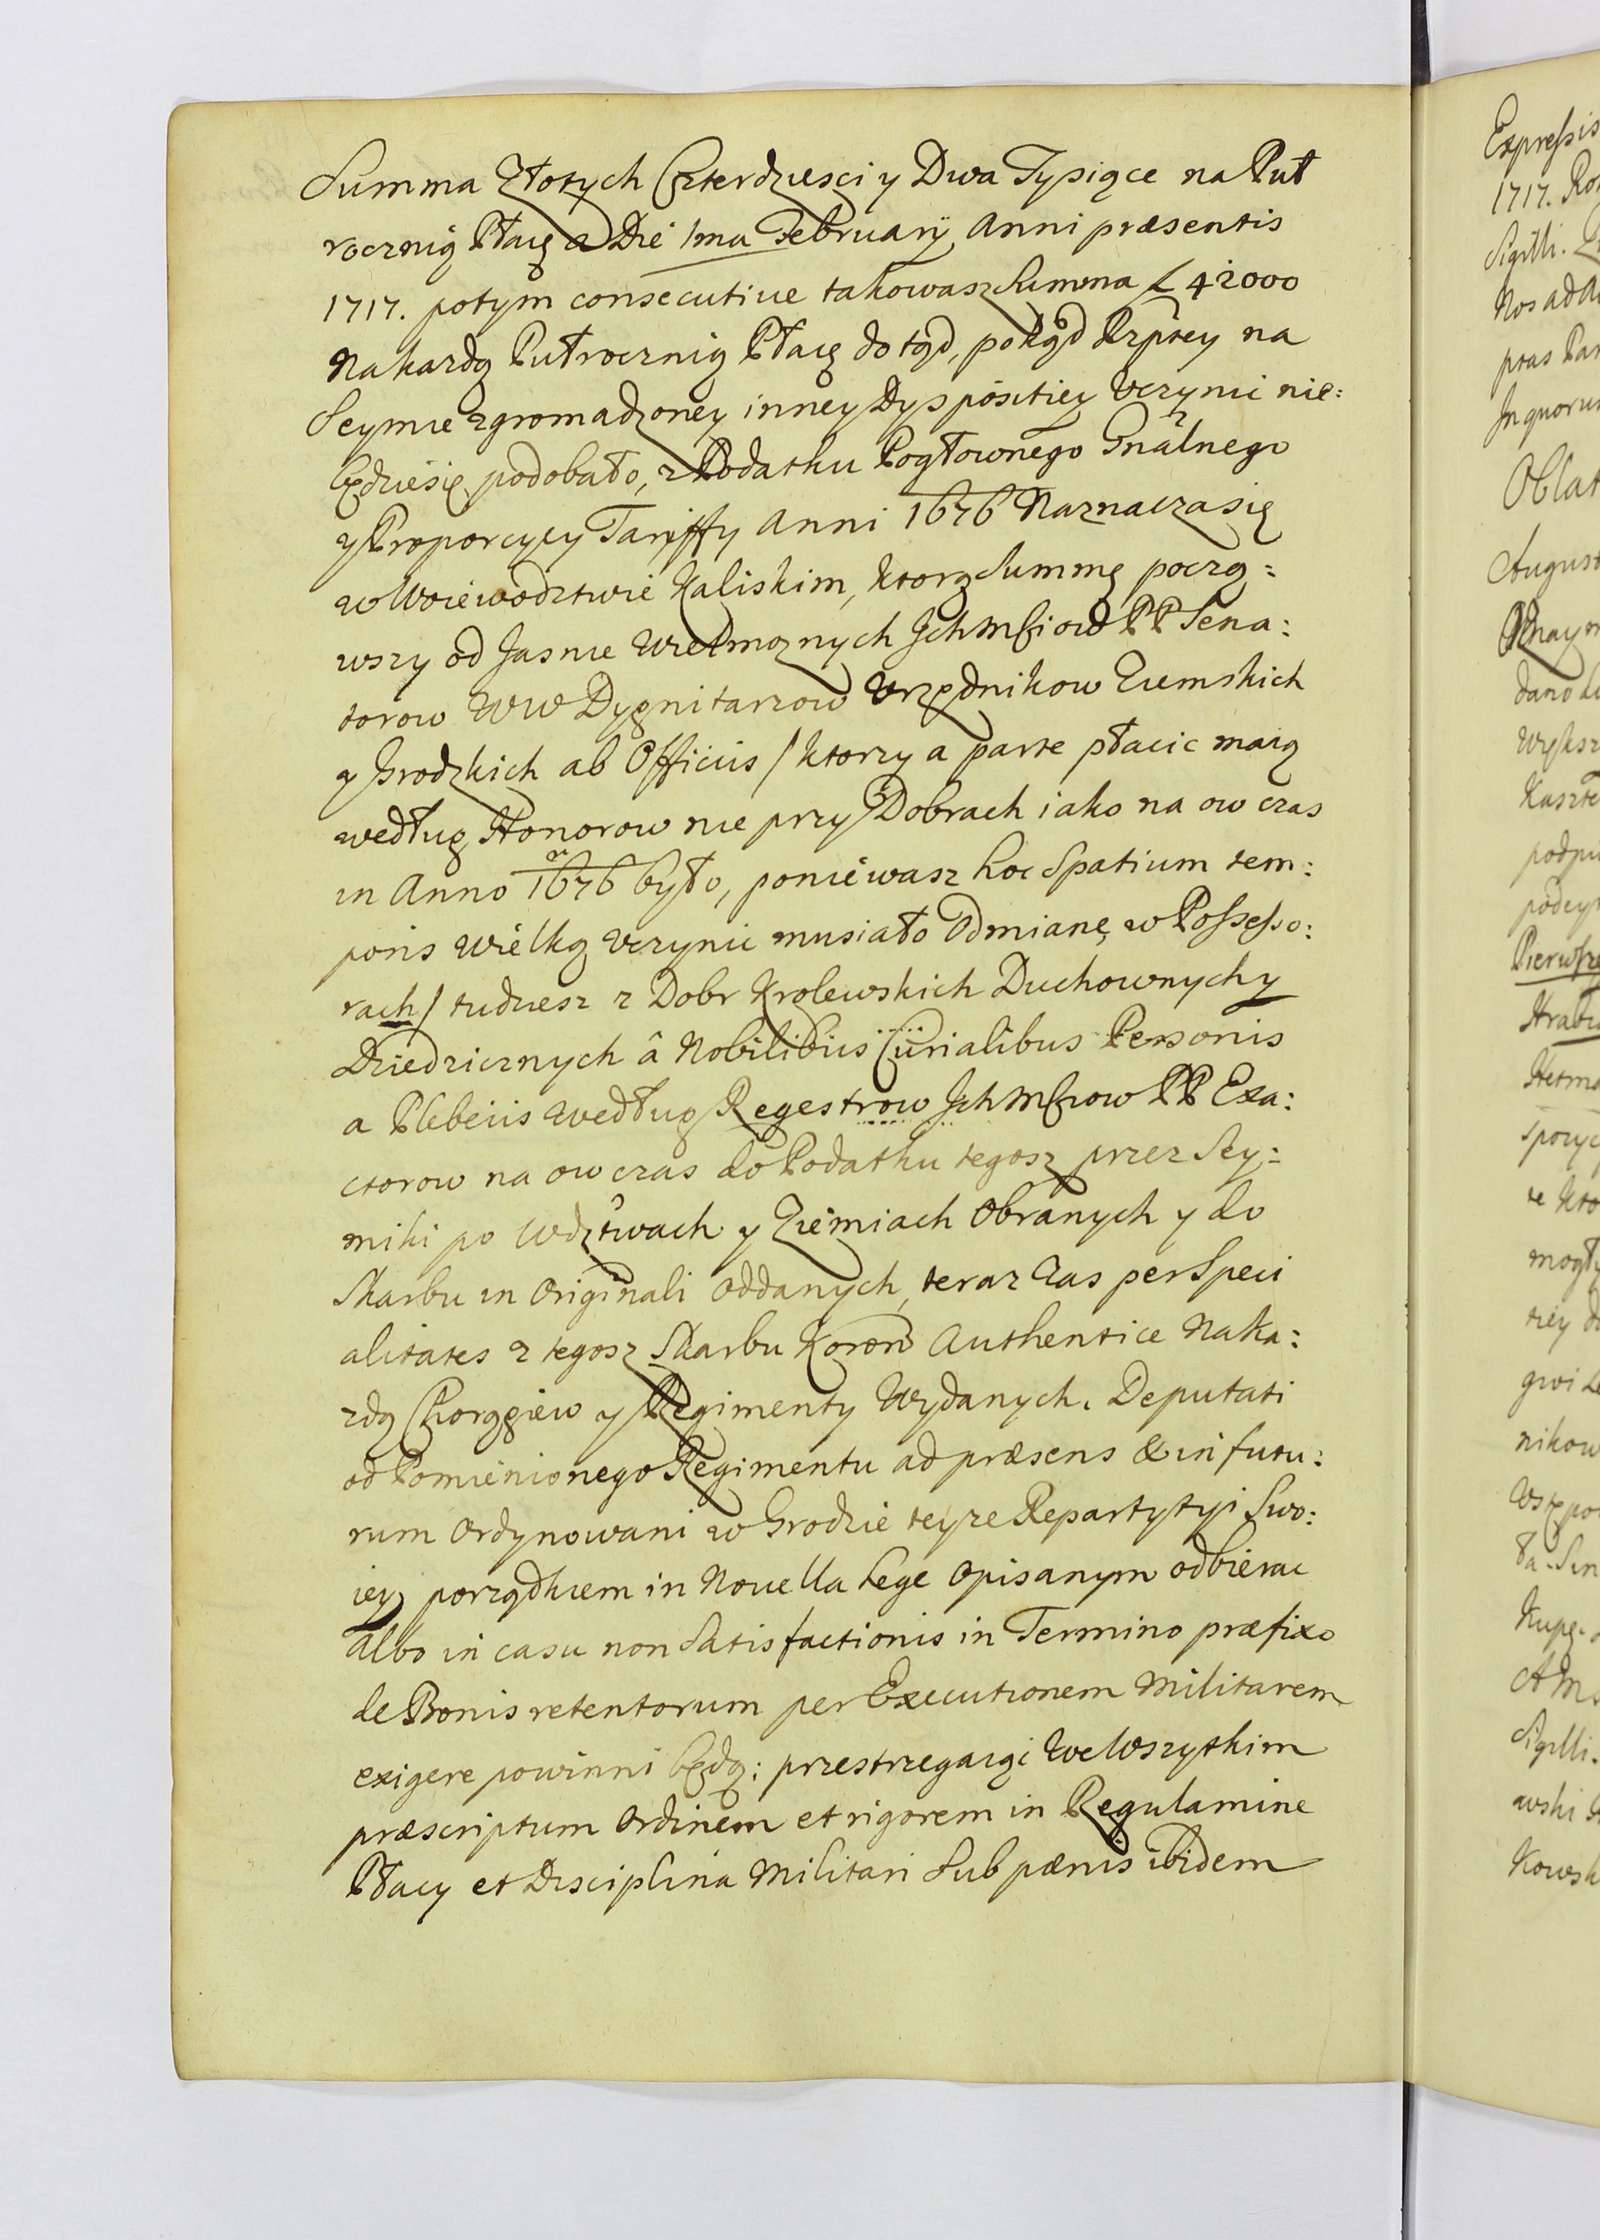 Summa Złotych Czterdziesci y Dwa Tysiące na Puł
rocznią Płacę a Die 1ma February Anni præsentis
1717. potym consecutive takowasz Summa f 42000
Na kazdą Pułrocznią Płacę do tąd, pokąd Rzptey na
Seymie zgromadzoney inney Dyspositiey Uczynić nie:
będzie się podobało, z Podatku Pogłownego Gnalnego
y Proporcyey Taryffy Anni 1676 Naznacza się
w Woiewodztwie Kaliskim, ktorą Summę począ:
wszy od Jasnie Wielmoznych Jchmciow PP Sena:
torow WW Dygnitarzow Urzędnikow Ziemskich
y Grodzkich ab Officiis / ktorzy a parte płacic maią
według Honorow nie przy Dobrach iako na ow czas
in Anno 1676 było, poniewasz hoc Spatium tem:
poris wielką Uczynić musiało Odmianę w Possesso:
rach / tudziesz z Dobr Krolewskich Duchownych y
Dziedzicznych â Nobilibus Curialibus Personis
a Plebeiis według Regestrow Jchmciow PP Exa:
ctorow na ow czas do Podatku tegosz przez Sey:
miki po Wdztwach y Ziemiach Obranych y do
Skarbu in Originali Oddanych, teraz Zas per Speci
alitates z tegosz Skarbu Koron Authentice Na ka:
zdą Chorągiew y Regimenty Wydanych. Deputati
od Pomienionego Regimentu ad præsens & in futu:
rum Ordynowani w Grodzie teyze Repartytyi Swo:
iey porządkiem in Novella Lege Opisanym odbierac
albo in casu non Satisfactionis in Termino præfixo
de Bonis retentorum per Executionem Militarem
exigere powinni będą; przestrzegaiąc We Wszytkim
præscriptum Ordinem et rigorem in Regulamine
Płacy et Disciplina Militari Sub pænis ibidem
Expressis
1717.
Sigilli.
Nos ad
pras
Jn quorum
Oblat
August
dano
Kaszte
Pierwsze
Hetma
te kto
mogły
nikow
Sigilli.
wski
Kowsk